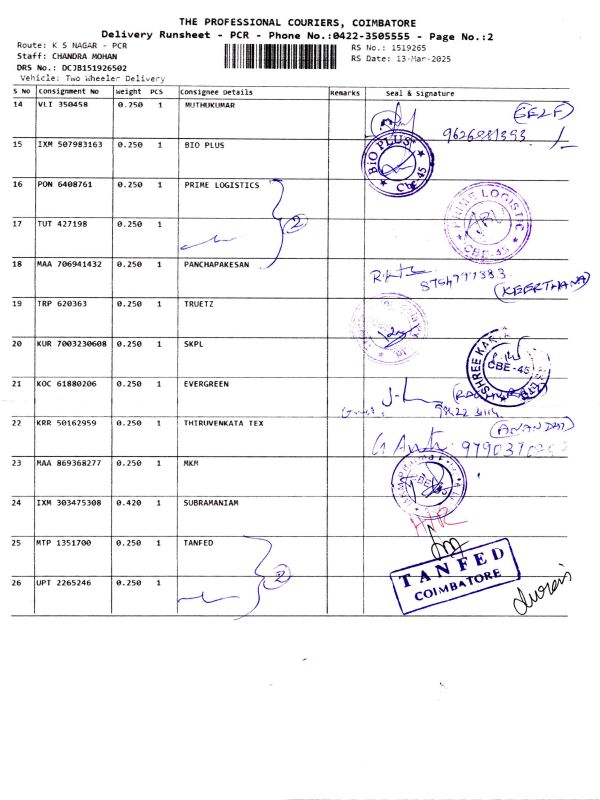 THE PROFESSIONAL COURIERS, COIMBATORE
Delivery Runsheet - PCR - Phone No.:0422-3505555 - Page No.:2
Route: K S NAGAR - PCR
RS No.: 1519265
Staff: CHANDRA MOHAN
RS Date: 13-Mar-2025
DRS No.: DCJB151926502
Vehicle: Two Wheeler Delivery
S No Consignment No Weight PCS Consignee Details Remarks Seal & Signature
14 VLI 350458 0.250 1 MUTHUKUMAR
(SELF)
15 IXM 507983163 0.250 1 BIO PLUS
BIO PLUS
CBE-45
16 PON 6408761 0.250 1 PRIME LOGISTICS
2
PRIME LOGISTIC
CBE-45
17 TUT 427198 0.250 1
18 MAA 706941432 0.250 1 PANCHAPAKESAN
(KEERTHANA)
19 TRP 620363 0.250 1 TRUETZ
20 KUR 7003230608 0.250 1 SKPL
CBE-45
21 KOC 61880206 0.250 1 EVERGREEN
22 KRR 50162959 0.250 1 THIRUVENKATA TEX
23 MAA 869368277 0.250 1 MKM
24 IXM 303475308 0.420 1 SUBRAMANIAM
25 MTP 1351700 0.250 1 TANFED
2
TANFED
COIMBATORE
26 UPT 2265246 0.250 1